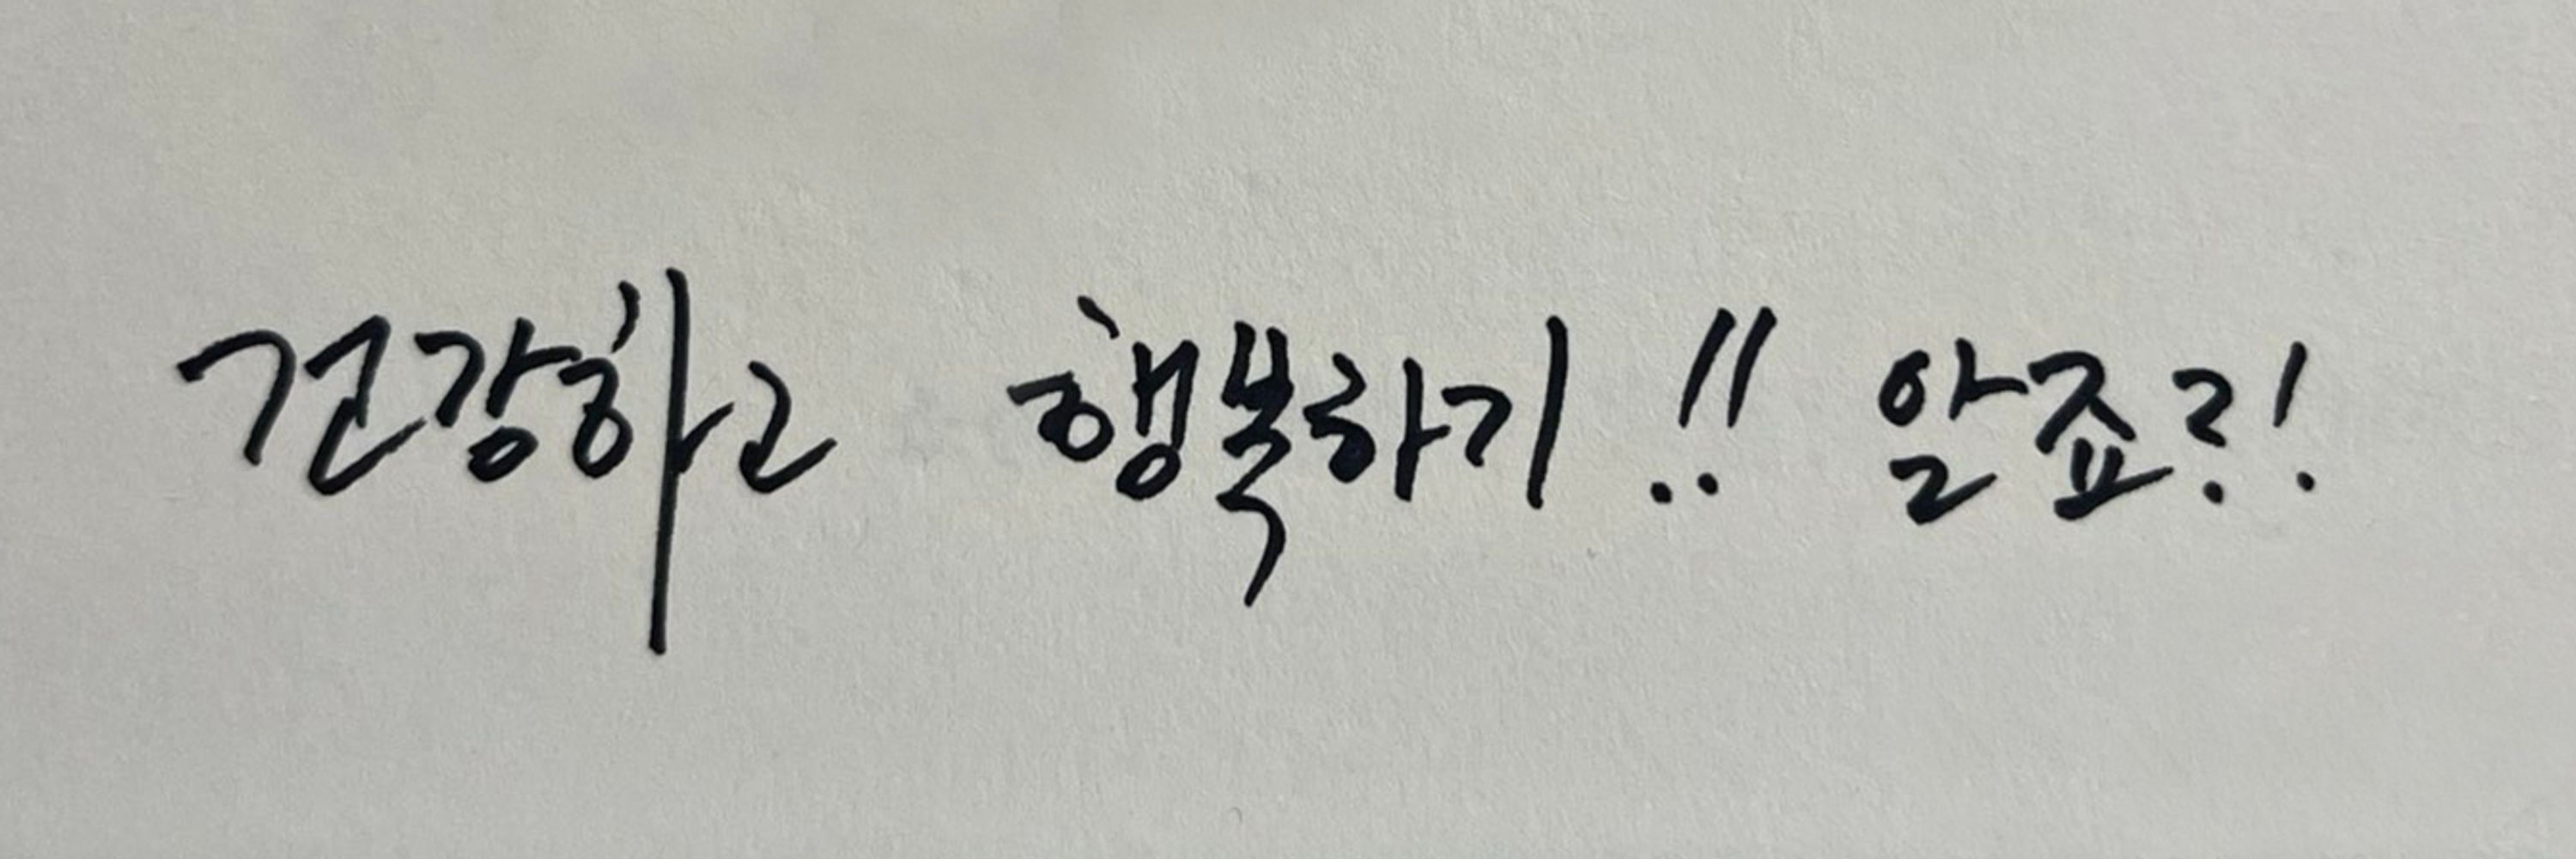 건강하고 행복하기!! 알죠?!